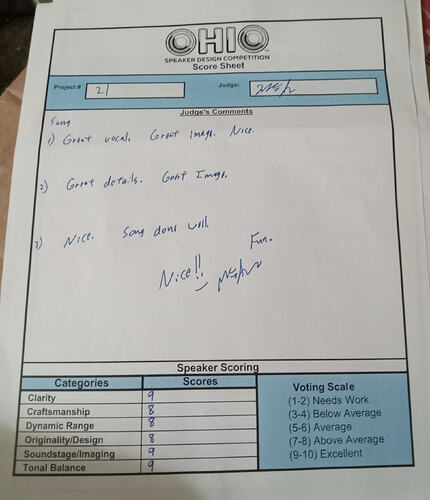 OHIO
SPEAKER DESIGN COMPETITION
Score Sheet
Project # 21 Judge:
Judge's Comments
Song
1) Great vocal. Great image. Nice.
2) Great details. Great Image.
3) Nice. Song done well.
Fun.
Nice!!
Speaker Scoring
Categories Scores
Clarity 9
Craftsmanship 8
Dynamic Range 8
Originality/Design 8
Soundstage/Imaging 9
Tonal Balance 9
Voting Scale
(1-2) Needs Work
(3-4) Below Average
(5-6) Average
(7-8) Above Average
(9-10) Excellent